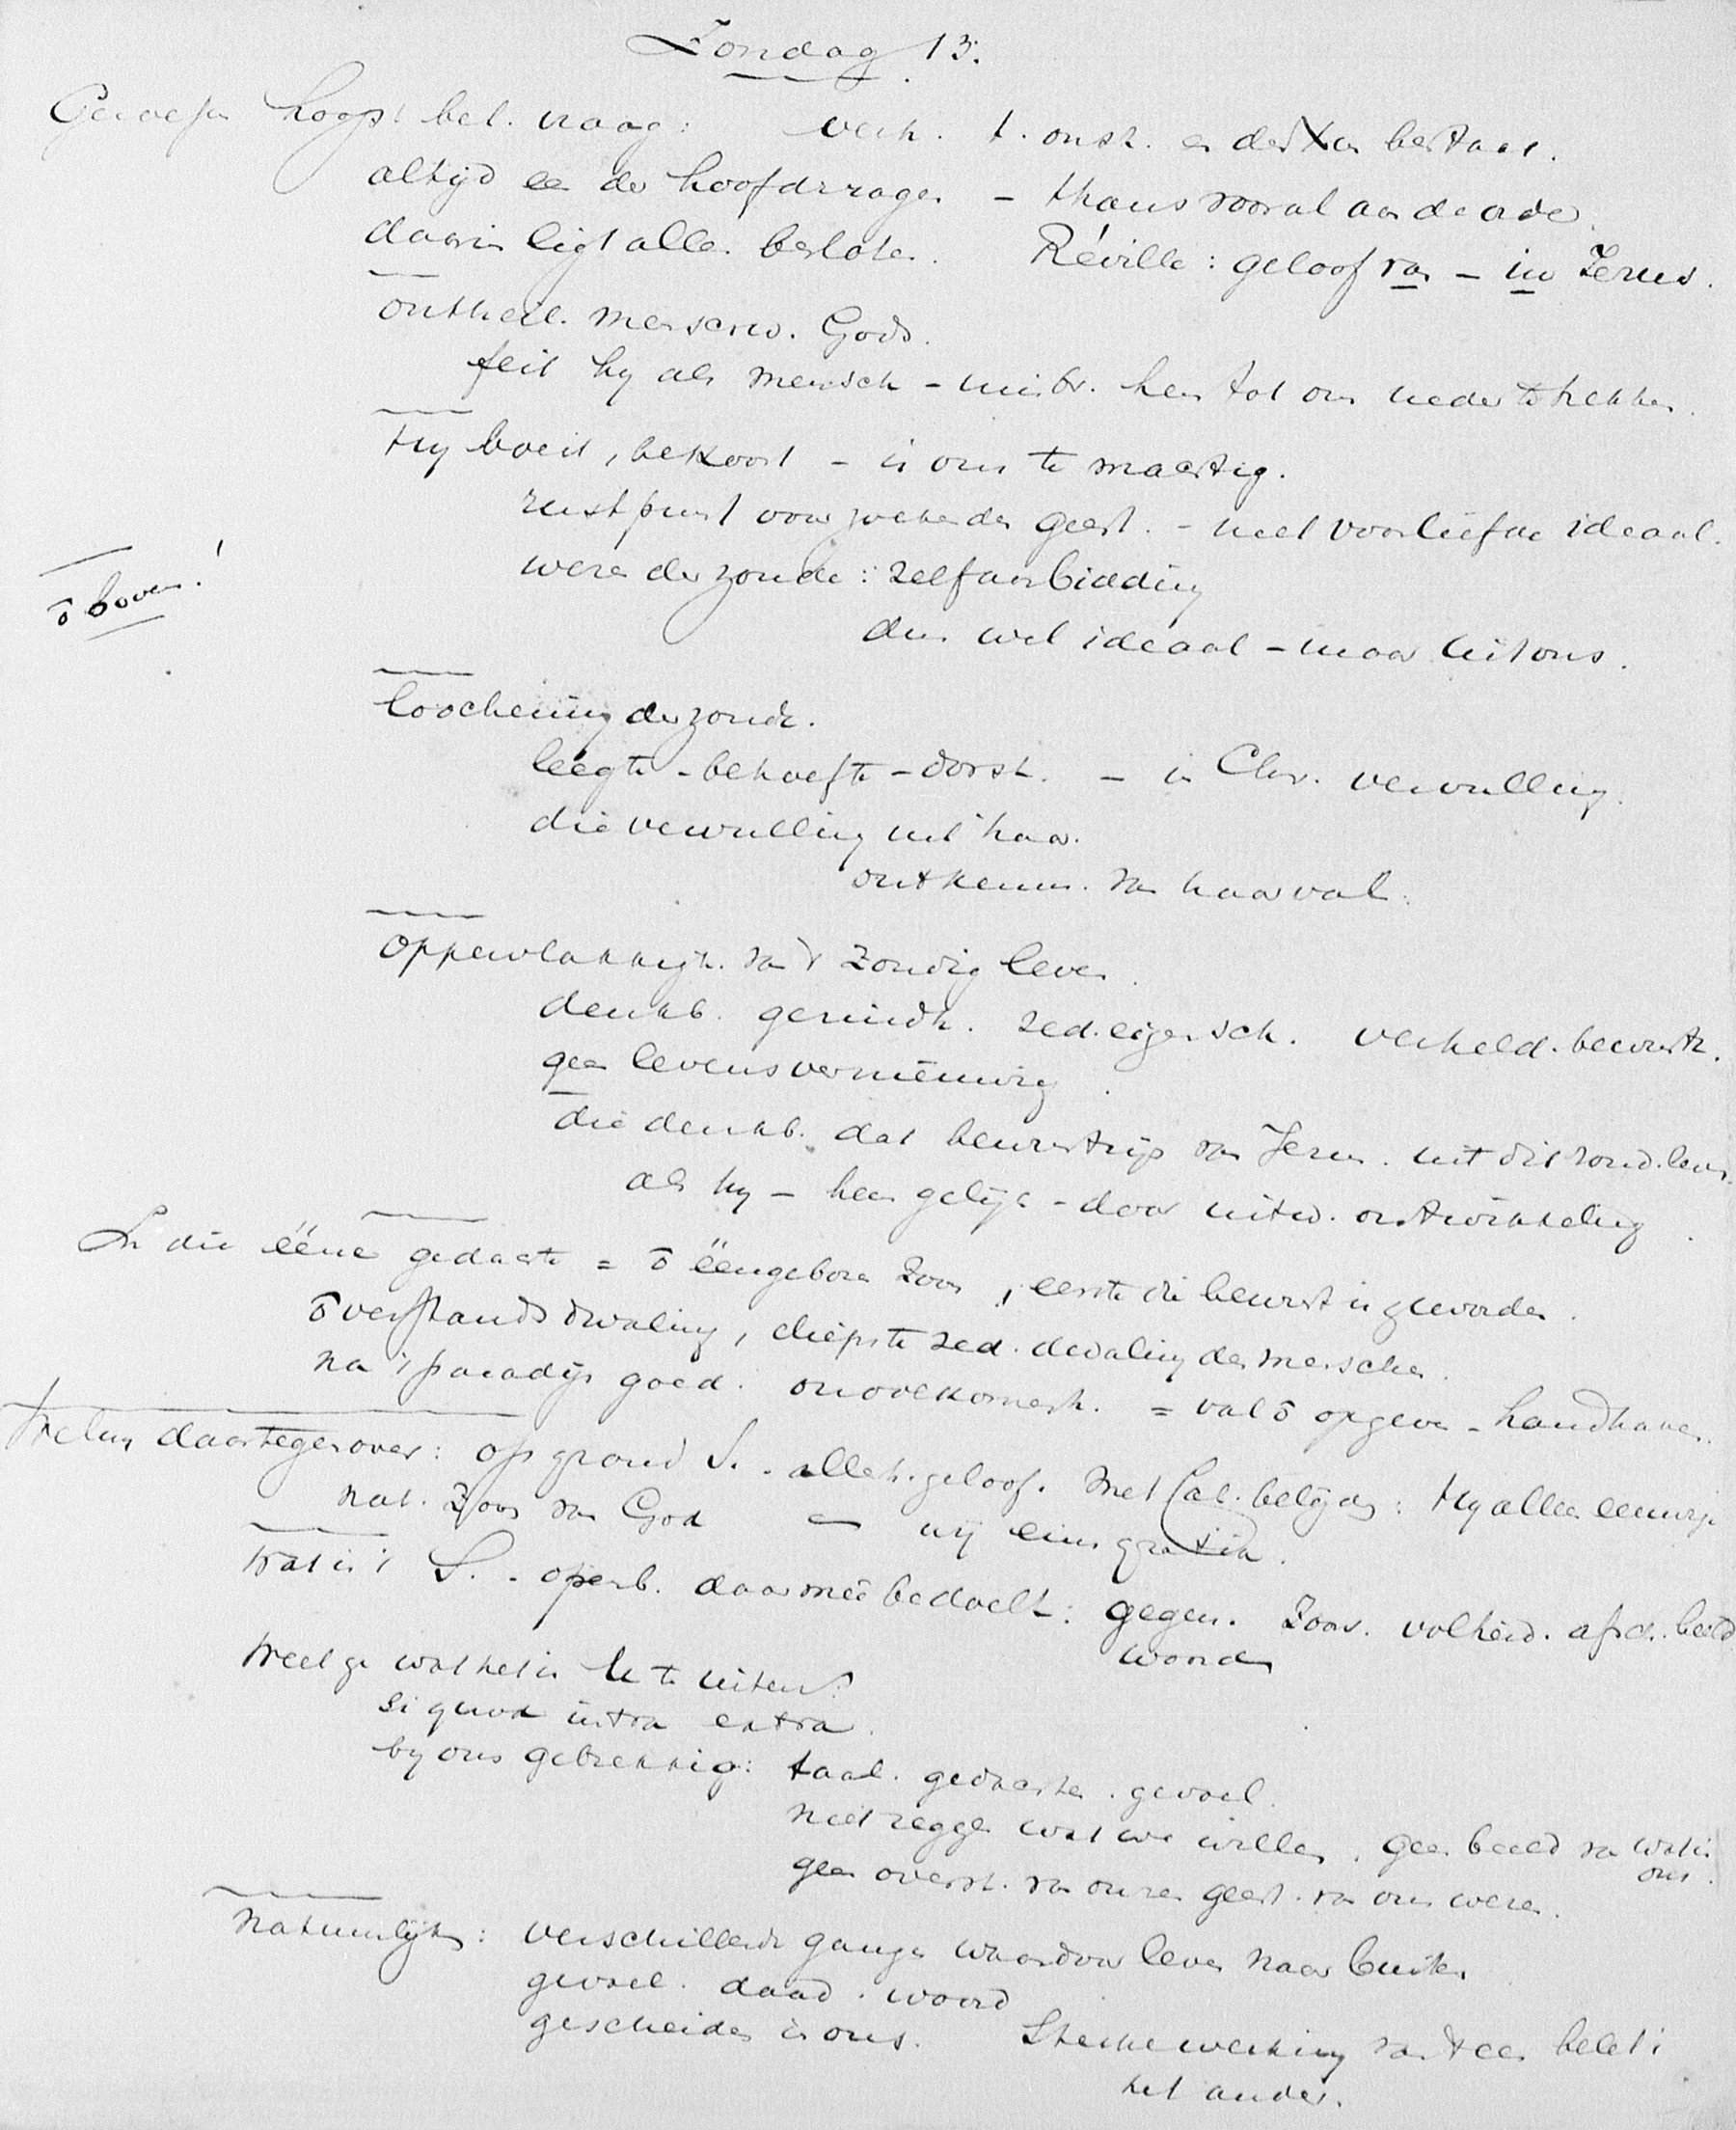 Zondag 13.
Geroepen hoogst bel. vraag: verh. t. onsh. en der Xen bestaat.
altijd een der hoofdvragen – thans vooral aan de orde.
daarin ligt alles besloten. Réville: geloof van – in Jezus.
onthul. menschw. Gods.
feit hy als mensch – uit br. hem tot ons neder te trekken.
Hy boeit, bekoort – is ons te machtig.
rustpunt voor zoekenden geest. – met voorliefde ideaal.
wezen der zonde: zelfaanbidding
dus wel ideaal – maar uit ons.
ō boven!
loochening der zonde.
leegte – behoefte – dorst. – in Chr. vervulling.
die vervulling uit haar.
ontkenn. van haar val.
oppervlakkigh. van 't zondig leven.
denkb. gezindh. zed. eigensch. verheld. bewustz.
geen levensvernieuwing.
die denkb. dat bewustzijn van Jezus. uit dit zond. leven.
als hy – hem gelijk – door uitw. ontwikkeling.
In die ééne gedachte = ō ééngeboren Zoon, eerste die bewust is geworden.
ō verstandsdwaling, diepste zed. dwaling der menschen.
na 't paradijs goed. onvolkomenh. = val ō opgeven – handhaven.
daartegenover: op grond S. . alleh. geloof. Met Cat. belijden: Hy alleen eeuwig
nat. Zoon van God – wij eius gratia.
Wat is 't S. . openb. daarmee bedoelt: gegen. Zoon. volheid. afsch. beeld
woord
Weet ge wat het is U te uiten?
si quod intra extra.
by ons gebrekkig: taal. gedachten. gevoel.
niet zeggen wat we willen. geen beeld van wat in
ons.
geen overst. van onzen geest. van ons wezen.
Natuurlijk: verschillende gangen waardoor leven naar buiten
gevoel. daad. woord
gescheiden in ons. Sterke werking van 't een belet 't
het ander.